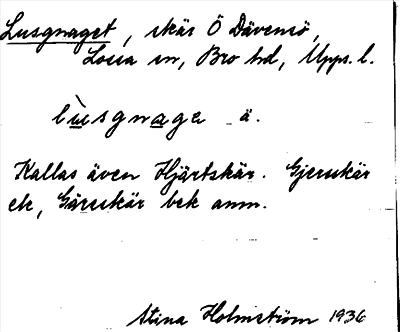 Lusgnaget, skär Ö Dävensö,
Lossa sn, Bro hd, Upps. l.
lùsgnagα ä.
Kallas även Hjärtskär. Gjersskär
ek, Gärsskär bek anm.
Stina Holmström 1936